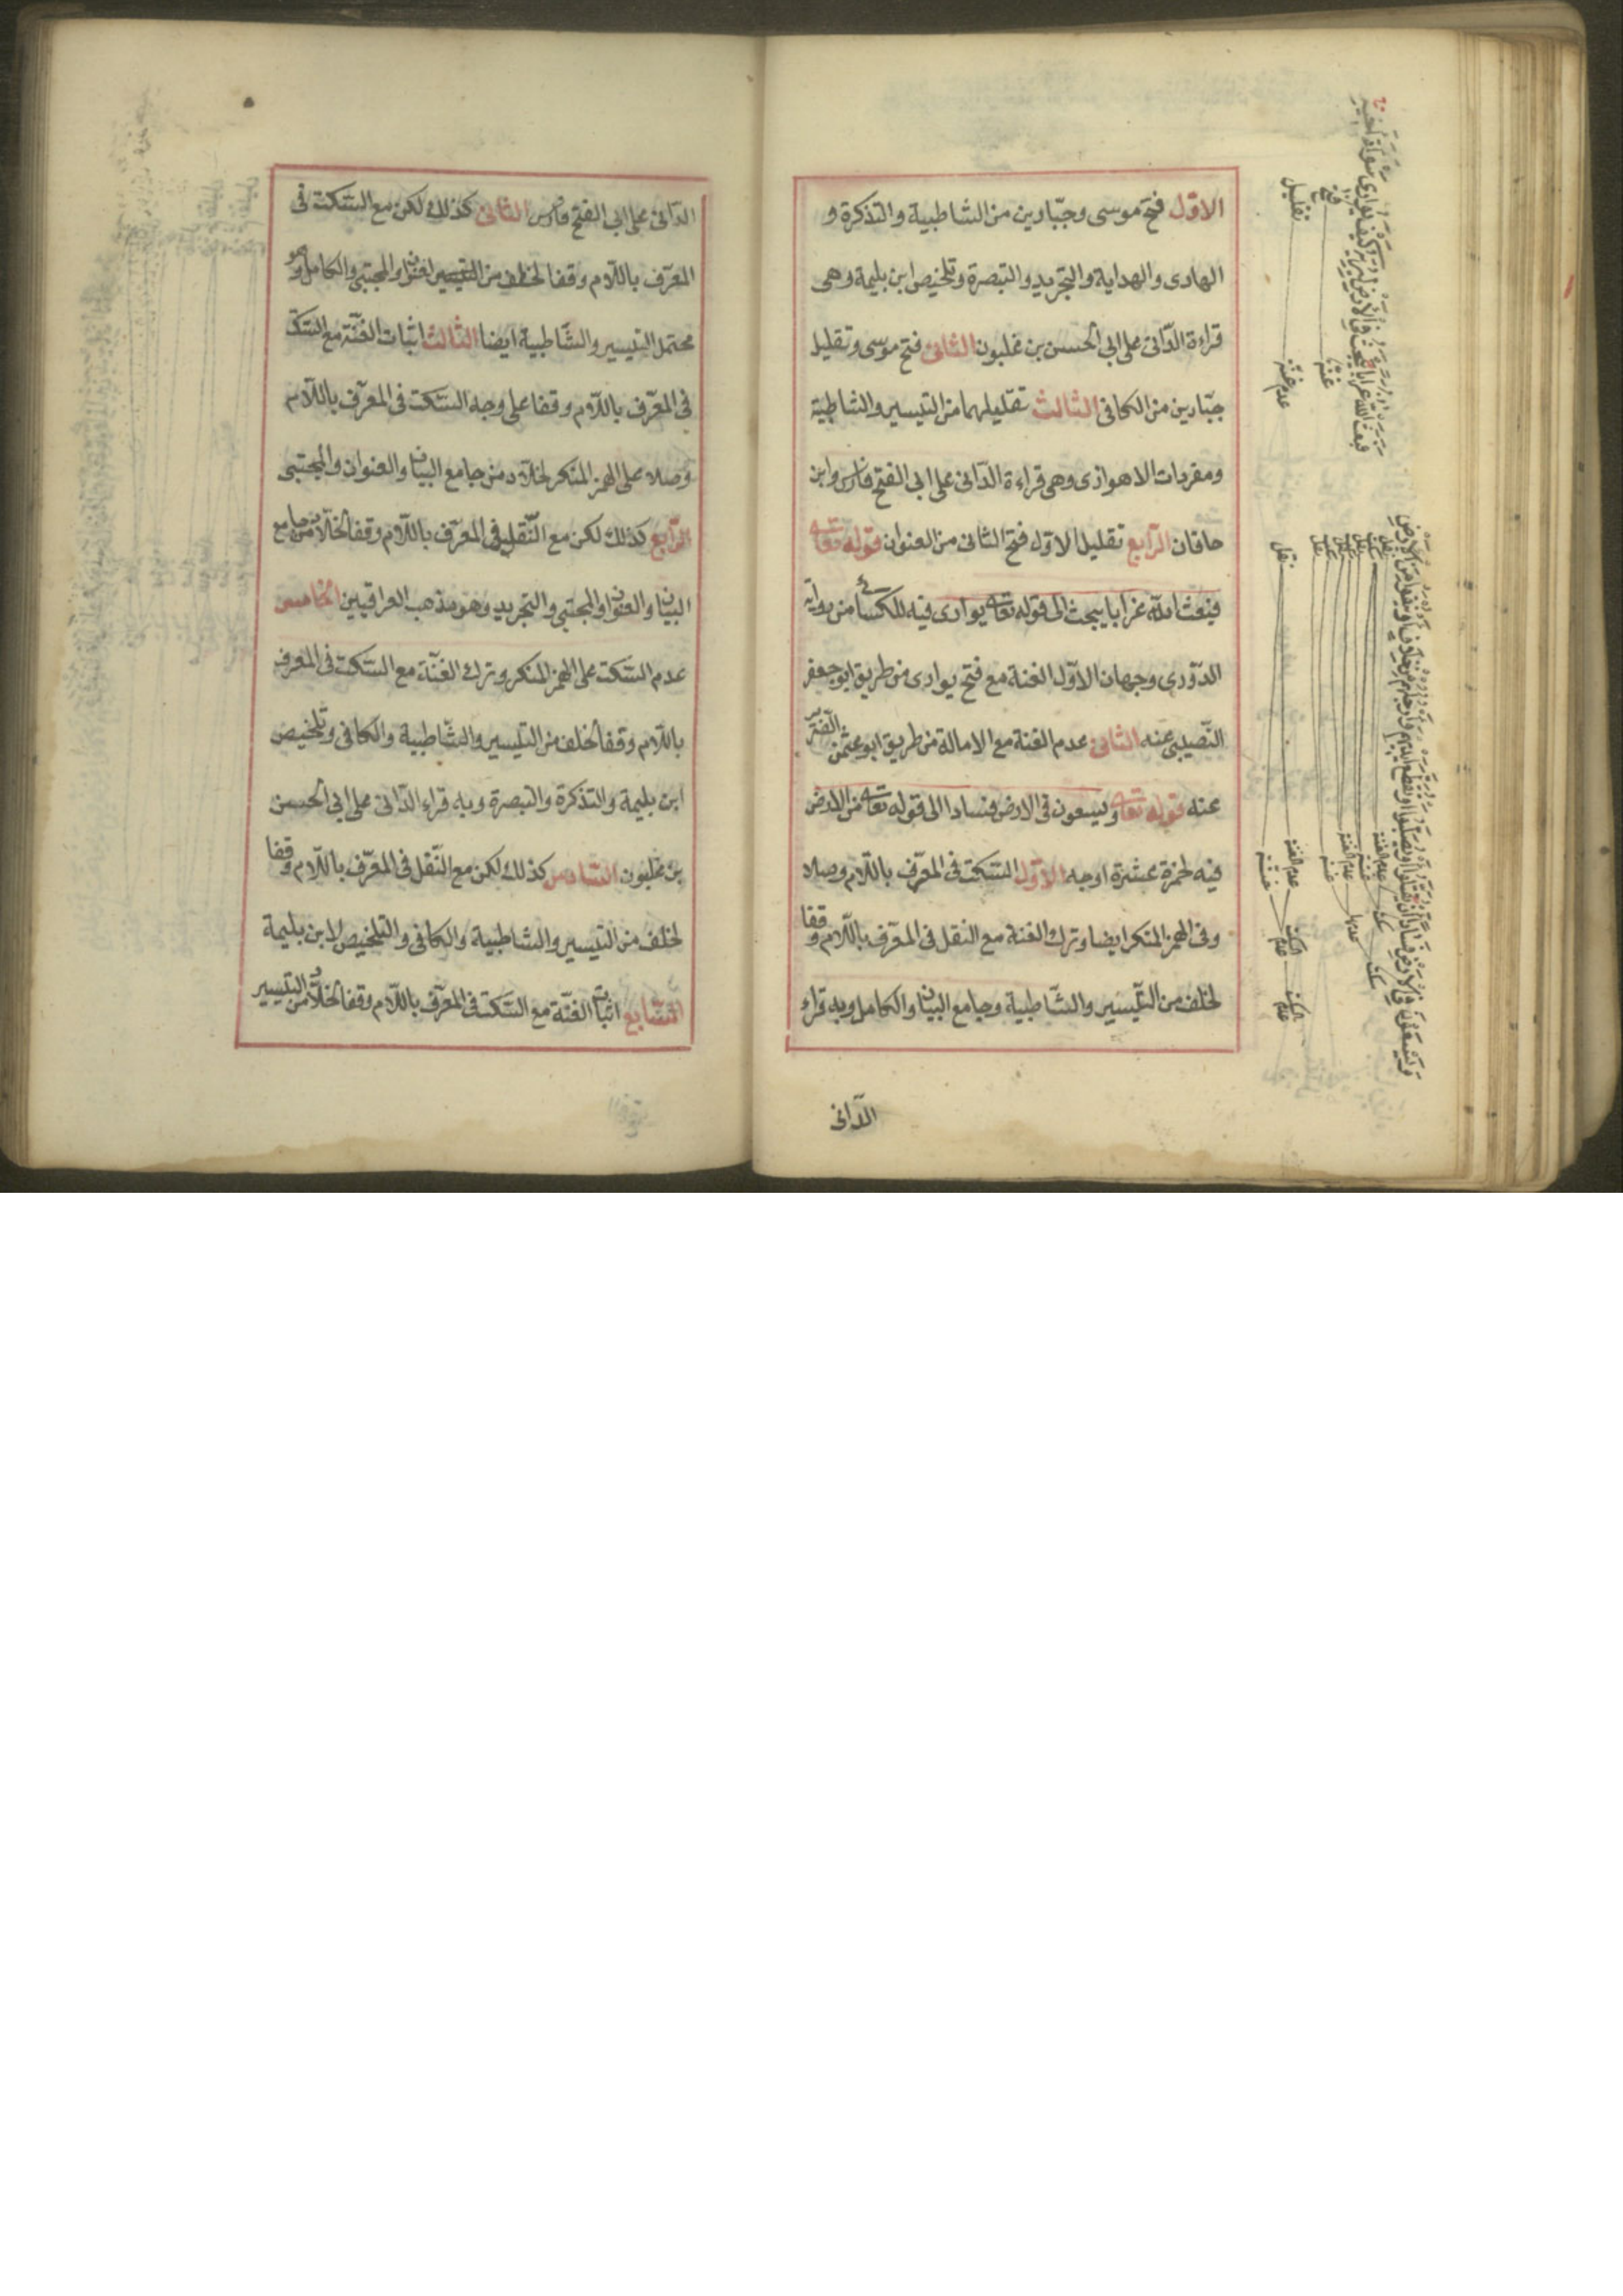 الاوّل فتح موسى وجبّارين من الشاطبية والتذكرة و
الهادى والهداية والتجريد والتبصرة وتلخيص ابن بليمة وهى
قراءة الدّانى على ابى الحسن بن غلبون الثانى فتح موسى وتقليل
جبّارين من الكافى الثالث تقليلهما من التيسير والشاطبية
ومفردات الاهوازى وهى قراءة الدّانى على ابى الفتح فارس وابن
خاقان الرّابع تقليل الاوّل فتح الثانى من العنوان قوله تعالى
فبعث الله غرابا يبحث الى قوله تعالى يوارى فيه للكسائى من رواية
الدّورى وجهان الاوّل الغنة مع فتح يوارى من طريق ابو جعفر
النّصيبى عنه الثانى عدم الغنة مع الامالة من طريق ابو عثمن الضّرير
عنه قوله تعالى ويسعون فى الارض فسادا الى قوله تعالى من الارض
فيه لحمزة عشرة اوجه الاوّل السّكت فى المعرّف باللّام وصلا
وفى الهمز المنكر ايضا وترك الغنة مع النقل فى المعرّف باللّام وقفا
لخلف من التّيسير والشّاطبية وجامع البيان والكامل وبه قراء
الدّانى
فبعث الله غرابا يبحث فى الارض ليريه كيف يوارى سوأة اخيه
فتح
غنّة
تقليل
عدم غنّة
ويسعون فى الارض فسادا ان يقتلوا او يصلبوا او تقطع ايديهم وارجلهم من خلاف او ينفوا من الارض
الدّانى على ابى الفتح فارس الثانى كذلك لكن مع السّكت فى
المعرّف باللّام وقفا لخلف من التيسير العنوان والمجتبى والكامل وهو
محتمل التيسير والشّاطبية ايضا الثّالث اثبات الغنّة مع السّكت
فى المعرّف باللّام وقفا على وجه السّكت فى المعرّف باللّام
وصلا على الهمز المنكر لخلّاد من جامع البيان والعنوان والمجتبى
الرّابع كذلك لكن مع النّقل فى المعرّف باللّام وقفا لخلّاد من جامع
البيان والعنوان والمجتبى والتجريد وهو مذهب العراقيين الخامس
عدم السّكت على الهمز المنكر وترك الغنّة مع السّكت فى المعرف
باللّام وقفا لخلف من التيسير والشّاطبية والكافى وتلخيص
ابن بليمة والتذكرة والتبصرة وبه قراء الدّانى على ابى الحسن
بن غلبون السّادس كذلك لكن مع النّقل فى المعرّف باللّام وقفا
لخلف من التيسير والشاطبية والكافى والتلخيص لابن بليمة
السّابع اثبات الغنّة مع السّكت فى المعرّف باللّام وقفا لخلّاد من التيسير